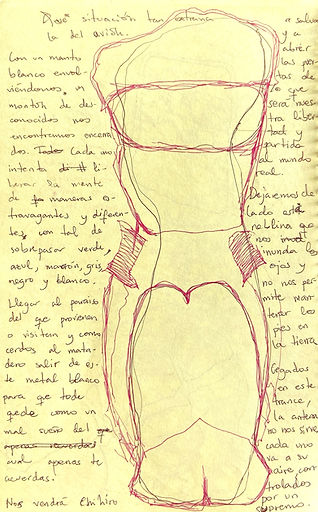 Qué situación tan extraña
la del avión.
Con un manto
blanco envol-
viéndonos, un
montón de des-
conocidos nos
encontramos encerra-
dos. Cada uno
intenta li-
berar la mente
de maneras ex-
travagantes y diferen-
tes, con tal de
sobrepasar verde,
azul, marrón, gris,
negro y blanco.
Llegar al paraíso
del que provienen
o visitan y como
cerdos al mata-
dero salir de es-
te metal blanco
para que todo
quede como un
mal sueño del
cual apenas te
acuerdas.
Nos vendrá Chihiro
a salvar
y a
abrir
las puer-
tas de
lo que
será nues-
tra liber-
tad y
partida
al mundo
real.
Dejaremos de
lado esta
neblina que
nos
inunda los
ojos y
no nos per-
mite man-
tener los
pies en
la tierra
Cegados
en este
trance,
la antena
no nos sirve
cada uno
va a su
aire, con-
trolados
por un
supremo.